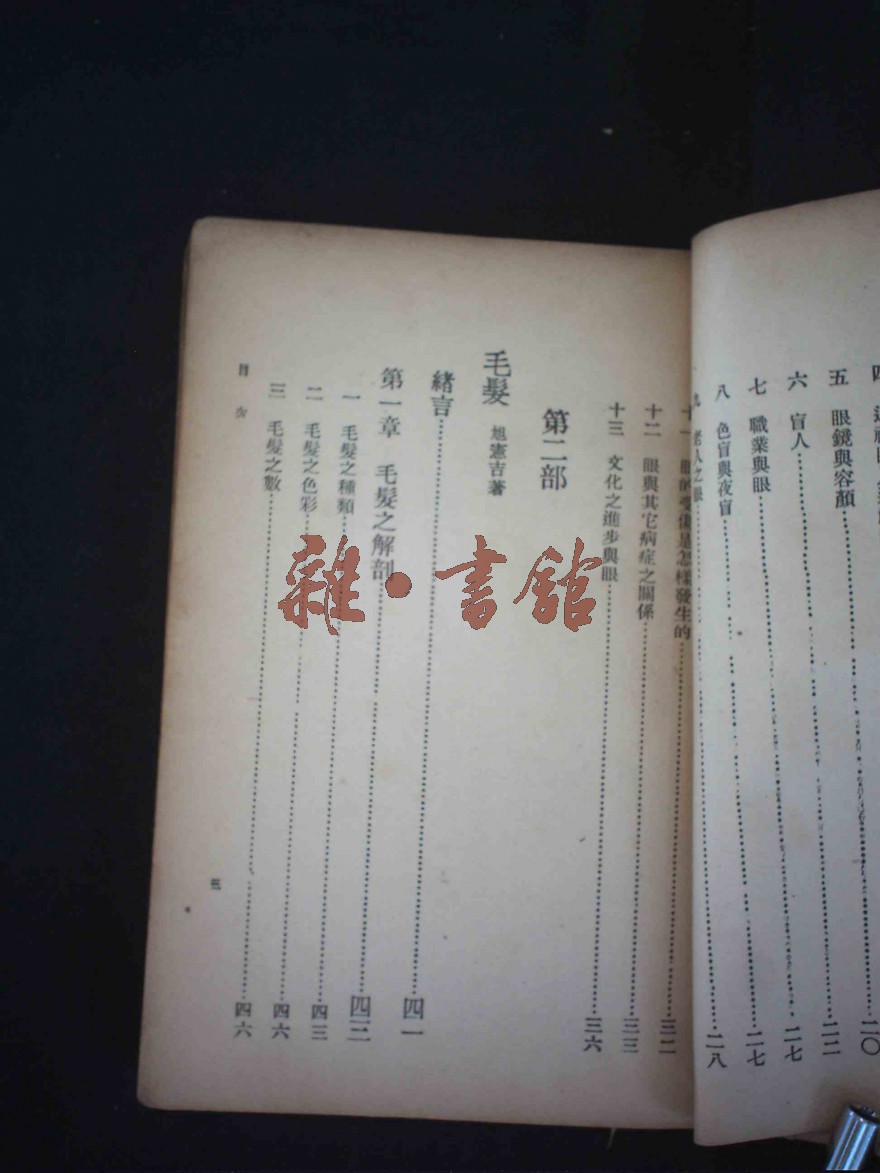 四 ……二〇
五 眼鏡與容顏……二二
六 盲人……二七
七 職業與眼……二七
八 色盲與夜盲……二八
九 老人之眼……
十一 眼的受傷是怎樣發生的……三二
十二 眼與其它病症之關係……三三
十三 文化之進步與眼……三六
第二部
毛髮 旭憲吉著
緒言……四一
第一章 毛髮之解剖……四二
一 毛髮之種類……四三
二 毛髮之色彩……四六
三 毛髮之數……四六
目次
三
雜·書館